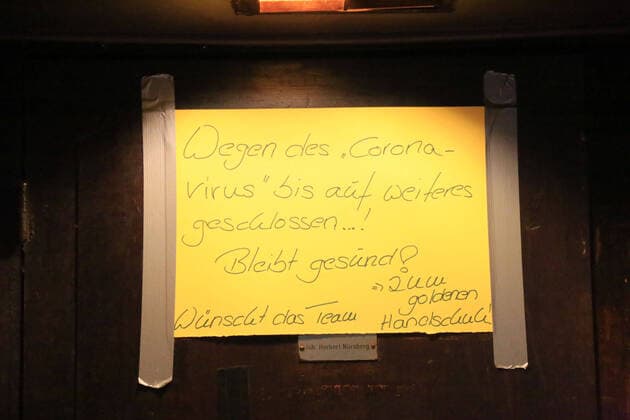 Wegen des „Corona-
virus" bis auf weiteres
geschlossen...!
Bleibt gesund!
Wünscht das Team
=> Zum
goldenen
Handschuh!
Inh. Herbert Nürnberg